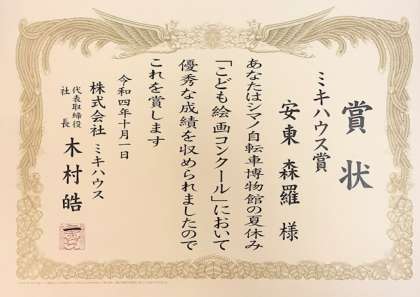 賞状
ミキハウス賞
安東 森羅 様
あなたはシマノ自転車博物館の夏休み
「こども絵画コンクール」において
優秀な成績を収められましたので
これを賞します
令和四年十月一日
株式会社 ミキハウス
代表取締役
社長 木村 皓一